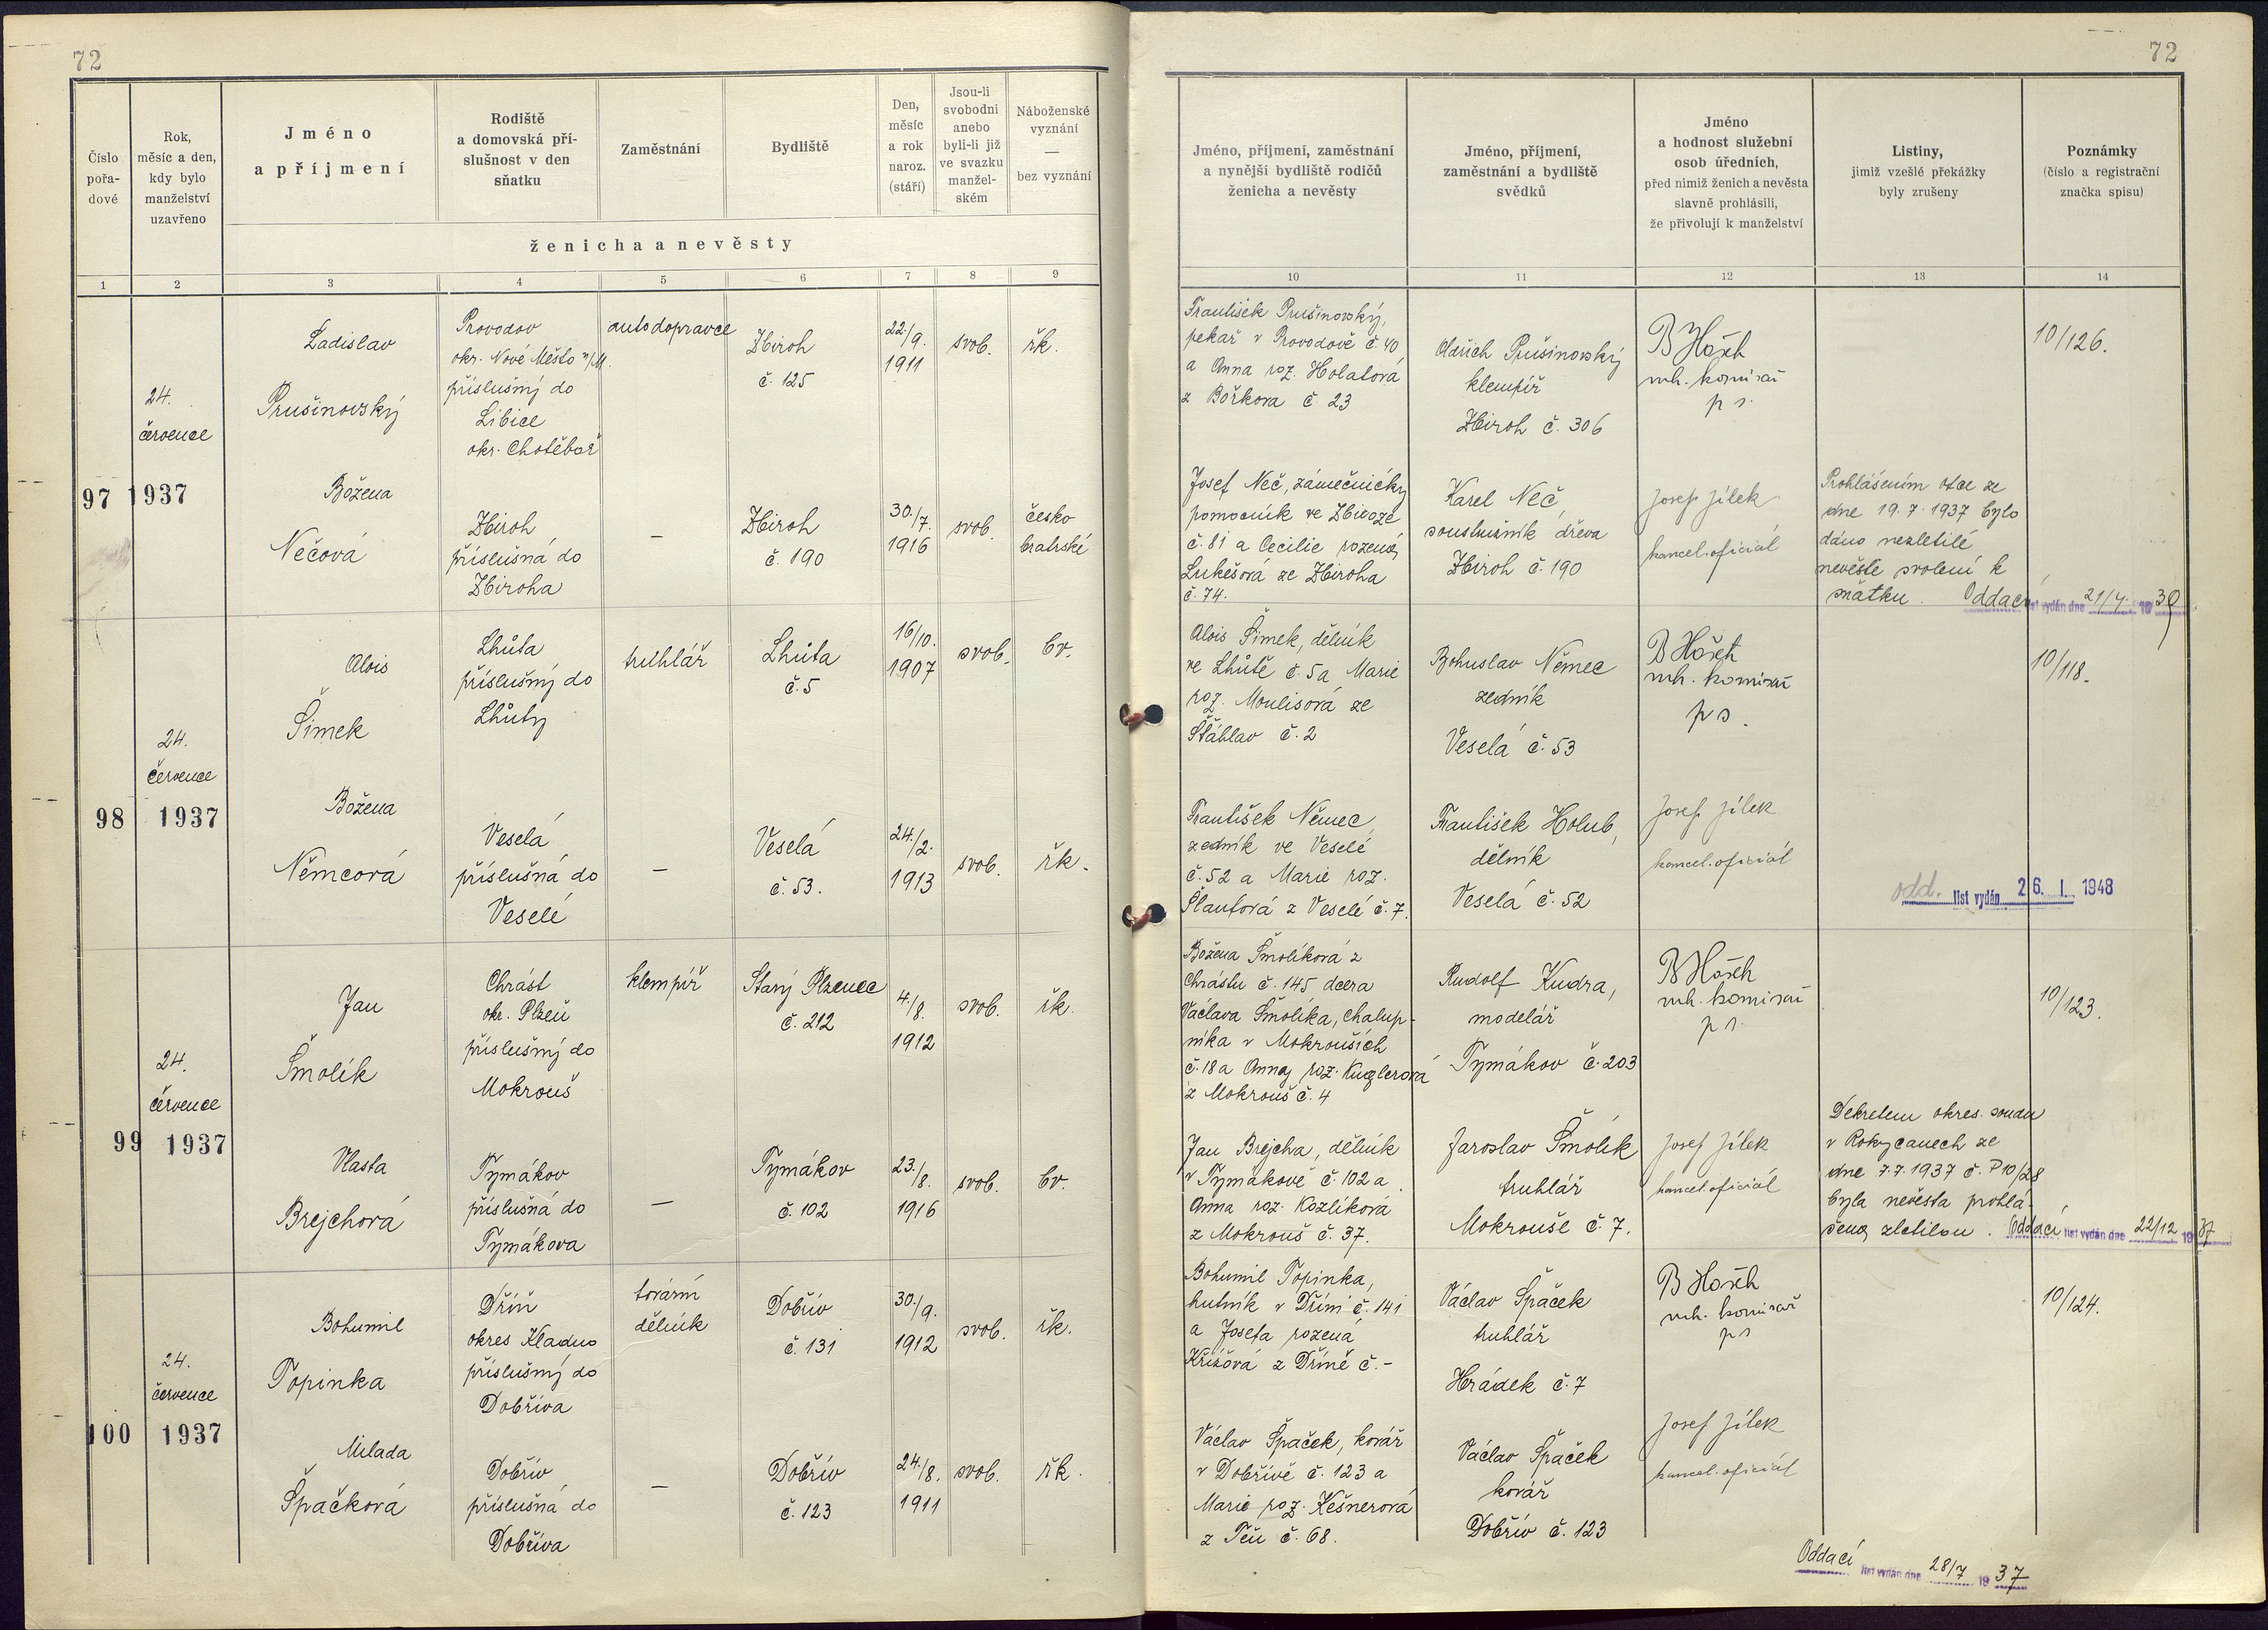 72
72
Číslo pořa- dové
Rok, měsíc a den, kdy bylo manželství uzavřeno
Jméno a příjmení
Rodiště a domovská pří- slušnost v den sňatku
Zaměstnání
Bydliště
Den, měsíc a rok naroz. (stáří)
Jsou-li svobodní anebo byli-li již ve svazku manžel- ském
Náboženské vyznání — bez vyznání
ženicha a nevěsty
Jméno, příjmení, zaměstnání a nynější bydliště rodičů ženicha a nevěsty
Jméno, příjmení, zaměstnání a bydliště svědků
Jméno a hodnost služební osob úředních, před nimiž ženich a nevěsta slavně prohlásili, že přivolují k manželství
Listiny, jimiž vzešlé překážky byly zrušeny
Poznámky (číslo a registrační značka spisu)
1 2 3 4 5 6 7 8 9 10 11 12 13 14
97
24.
července
1937
Ladislav
Prušinovský
Provodov
okr. Nové Město n/M.
příslušný do
Libice
okr. Chotěboř
autodopravce
Zbiroh
č. 125
22./9.
1911
svob.
řk.
František Prušinovský,
pekař v Provodově č. 40
a Anna roz. Holatová
z Bořkova č 23
Oldřich Prušinovský
klempíř
Zbiroh č. 306
vrh. komisař
p s.
10/126.
Božena
Nečová
Zbiroh
příslušná do
Zbiroha
—
Zbiroh
č. 190
30./7.
1916
svob.
česko
bratrské
Josef Neč, zámečnický
pomocník ve Zbiroze
č. 81 a Cecilie rozená
Lukešová ze Zbiroha
č. 74.
Karel Neč,
soustružník dřeva
Zbiroh č. 190
Josef Jílek
kancel. oficiál
Prohlášením otce ze
dne 19. 7. 1937 bylo
dáno nezletilé
nevěstě svolení k
sňatku. Oddací list vydán dne 21/4. 1939
98
24.
července
1937
Alois
Šimek
Lhůta
příslušný do
Lhůty
truhlář
Lhůta
č. 5
16/10.
1907
svob.
bv.
Alois Šimek, dělník
ve Lhůtě č. 5 a Marie
roz. Moulisová ze
Šťáhlav č. 2
Bohuslav Němec
zedník
Veselá č. 53
vrh. komisař
p s.
10/118.
Božena
Němcová
Veselá
příslušná do
Veselé
—
Veselá
č. 53.
24./2.
1913
svob.
řk.
František Němec,
zedník ve Veselé
č. 52 a Marie roz.
Šlaufová z Veselé č. 7.
František Holub,
dělník
Veselá č. 52
Josef Jílek
kancel. oficiál
odd. list vydán 26. I. 1948
99
24.
července
1937
Jan
Šmolík
Chrást
okr. Plzeň
příslušný do
Mokrouš
klempíř
Starý Plzenec
č. 212
4./8.
1912
svob.
řk.
Božena Šmolíková z
Chrástu č. 145 dcera
Václava Šmolíka, chalup-
níka v Mokrouších
č. 18 a Anny roz. Kuglerová
z Mokrouš č. 4
Rudolf Kudra,
modelář
Tymákov č. 203
vrh. komisař
p s.
10/123.
Vlasta
Brejchová
Tymákov
příslušná do
Tymákova
—
Tymákov
č. 102
23./8.
1916
svob.
bv.
Jan Brejcha, dělník
v Tymákově č. 102 a
Anna roz. Kozlíková
z Mokrouš č. 37.
Jaroslav Šmolík
truhlář
Mokrouše č. 7.
Josef Jílek
kancel. oficiál
Dekretem okres. soudu
v Rokycanech ze
dne 7. 7. 1937 č. P 10/28
byla nevěsta prohlá-
šena zletilou. Oddací list vydán dne 22/12 1937
100
24.
července
1937
Bohumil
Topinka
Dříň
okres Kladno
příslušný do
Dobříva
tovární
dělník
Dobřív
č. 131
30./9.
1912
svob.
řk.
Bohumil Topinka,
hutník v Dříni č. 141
a Josefa rozená
Křížová z Dříně č. -
Václav Špaček
truhlář
Hrádek č. 7
vrh. komisař
p s
10/124.
Milada
Špačková
Dobřív
příslušná do
Dobříva
—
Dobřív
č. 123
24./8.
1911
svob.
řk.
Václav Špaček, kovář
v Dobřívě č. 123 a
Marie roz. Kešnerová
z Těň č. 68.
Václav Špaček
kovář
Dobřív č. 123
Josef Jílek
kancel. oficiál
Oddací list vydán dne 28/7 1937